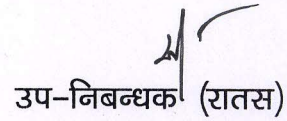 उप-निबन्धक (रातस)